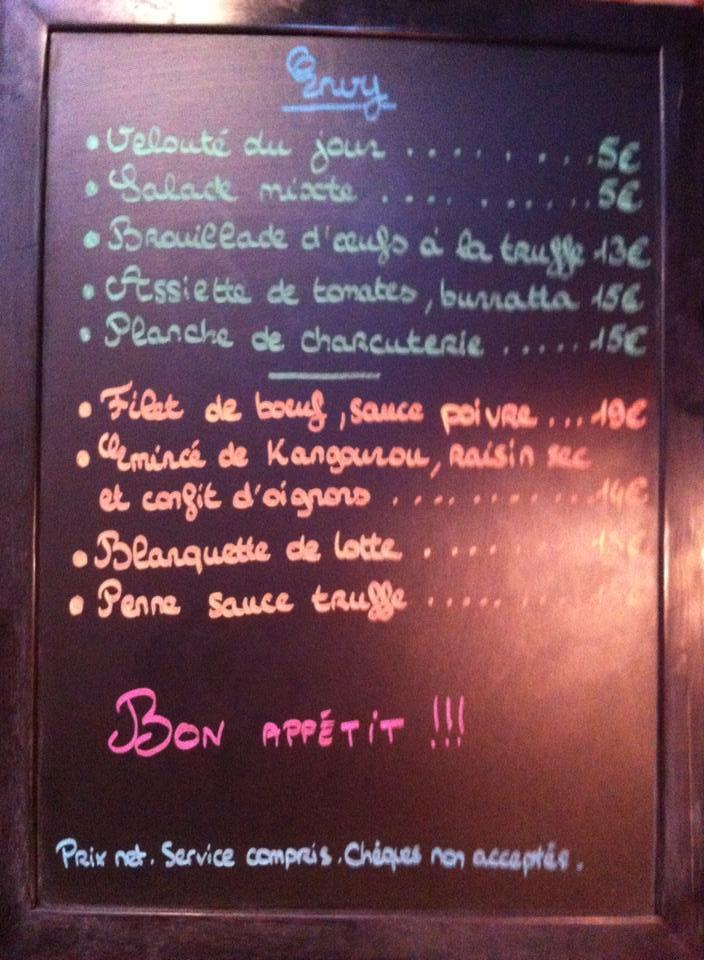 Envy
• Velouté du jour ......... 5€
• Salade mixte .......... 5€
• Brouillade d'œufs à la truffe 13€
• Assiette de tomates, burratta 15€
• Planche de charcuterie ..... 15€
• Filet de bœuf, sauce poivre ... 19€
• Emincé de Kangourou, raisin sec
et confit d'oignons .......... 14€
• Blanquette de lotte .........
• Penne sauce truffe .........
BON APPÉTIT !!!
Prix net. Service compris. Chèques non acceptés.